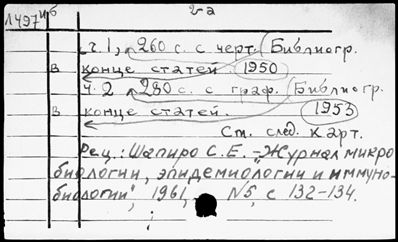 1497иб
2-а
ч. 1, 260 с. с черт. Библиогр.
в конце статей 1950
ч. 2 280 с. с граф. Библиогр.
в конце статей. 1953
См. след. карт.
Рец.: Шапиро С.Е. - "Журнал микро
биологии, эпидемиологии и иммуно-
биологии", 1961, N5, с 132-134.